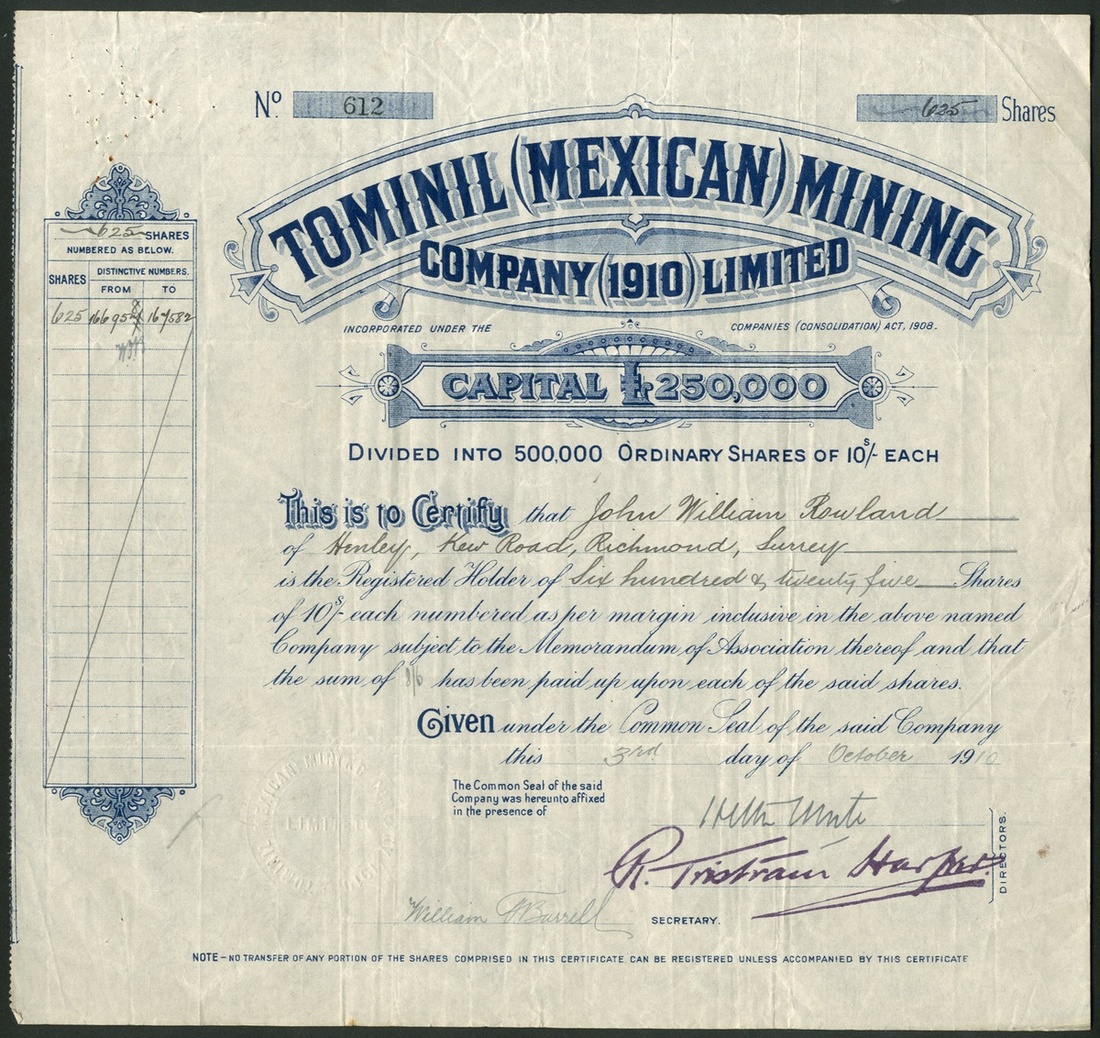 Nº 612
625 Shares
TOMINIL (MEXICAN) MINING
COMPANY (1910) LIMITED
INCORPORATED UNDER THE COMPANIES (CONSOLIDATION) ACT, 1908.
CAPITAL £250,000
DIVIDED INTO 500,000 ORDINARY SHARES OF 10s/- EACH
625 SHARES
NUMBERED AS BELOW.
SHARES DISTINCTIVE NUMBERS.
FROM TO
625 167582
This is to Certify that John William Rowland
of Henley, Kew Road, Richmond, Surrey
is the Registered Holder of Six hundred & twenty five Shares
of 10s/- each numbered as per margin inclusive in the above named
Company subject to the Memorandum of Association thereof and that
the sum of 8/6 has been paid up upon each of the said shares.
Given under the Common Seal of the said Company
this 3rd day of October 1910
The Common Seal of the said
Company was hereunto affixed
in the presence of
R. Tristram Harper
DIRECTORS.
William F Burrell
SECRETARY.
NOTE – NO TRANSFER OF ANY PORTION OF THE SHARES COMPRISED IN THIS CERTIFICATE CAN BE REGISTERED UNLESS ACCOMPANIED BY THIS CERTIFICATE